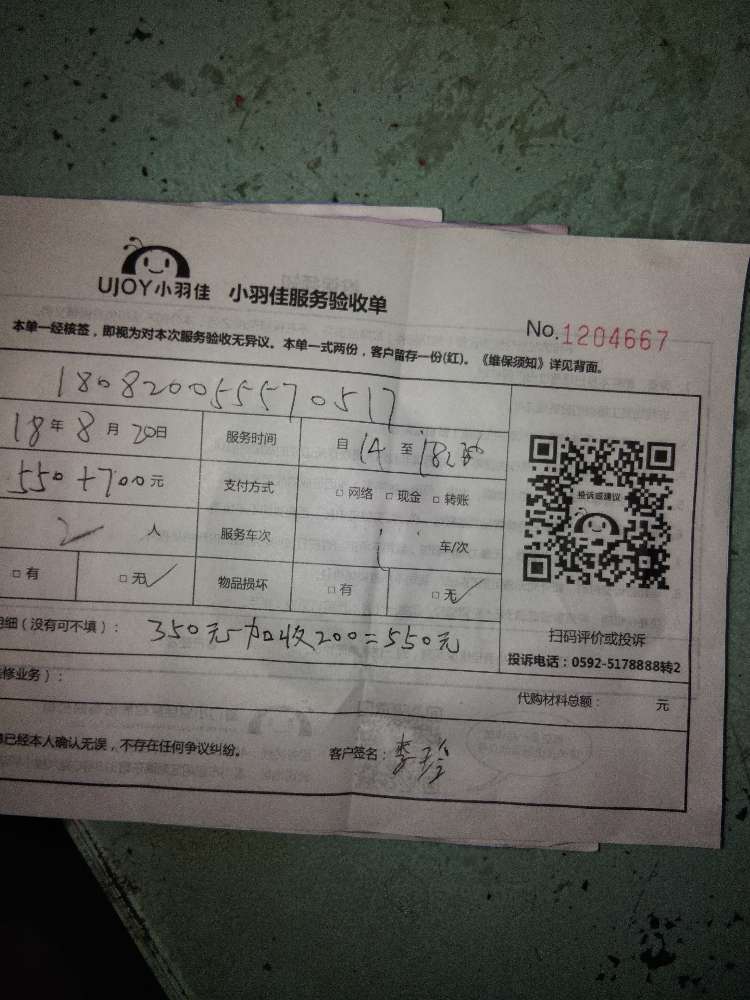 UJOY小羽佳 小羽佳服务验收单
No.1204667
本单一经核签,即视为对本次服务验收无异议。本单一式两份,客户留存一份(红)。《维保须知》详见背面。
1808200555570517
18年8月20日 服务时间 自14至
550+700元 支付方式 □网络 □现金 □转账
2人 服务车次 1车/次
□有 □无 物品损坏 □有 □无
投诉或建议
扫码评价或投诉
投诉电话:0592-5178888转2
细(没有可不填): 350元加收200=550元
修业务): 代购材料总额: 元
已经本人确认无误,不存在任何争议纠纷。 客户签名: